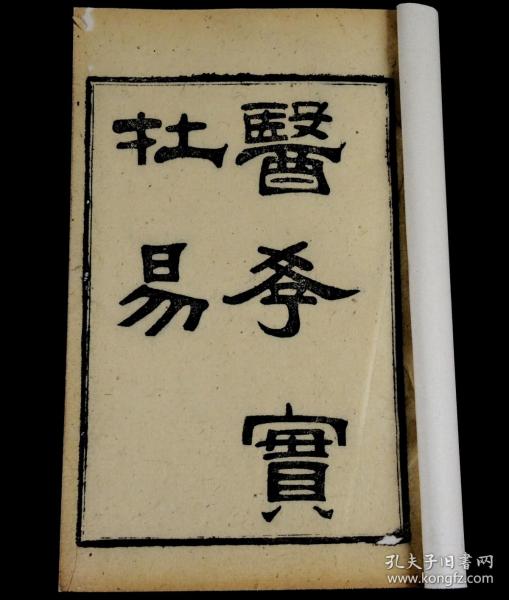 醫𡥈實
扗易
孔夫子旧书网
www.kongfz.com